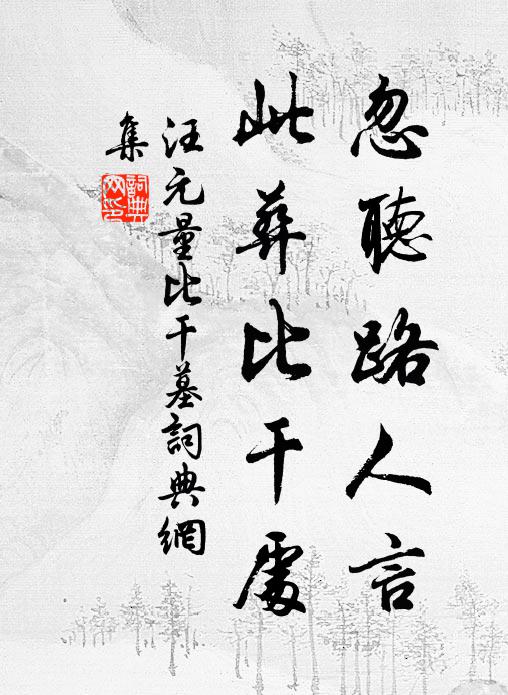 忽聽路人言
此葬比干處
汪元量比干墓詞典網
集
詞典
網印